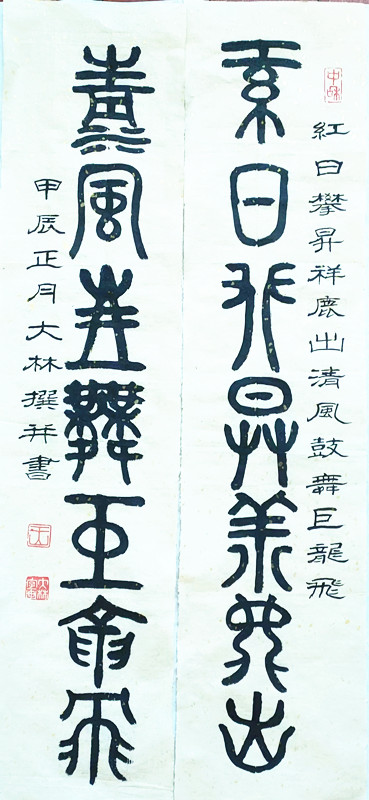 中和
紅日攀昇祥鹿出清風鼓舞巨龍飛
紅日攀昇祥鹿出
清風鼓舞巨龍飛
甲辰正月大林撰并書